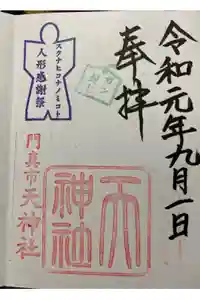 令和元年九月一日
奉拝
スクナヒコナノミコト
人形感謝祭
門真市天神社
天
神社